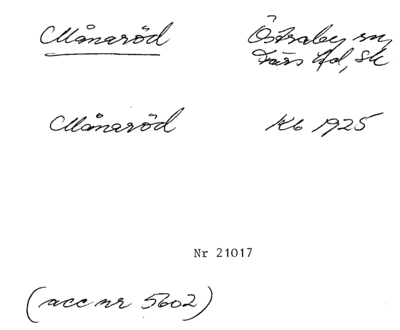 Månaröd Östraby sn
Färs hd, Sk
Månaröd Kb 1925
Nr 21017
(acc nr 5602)